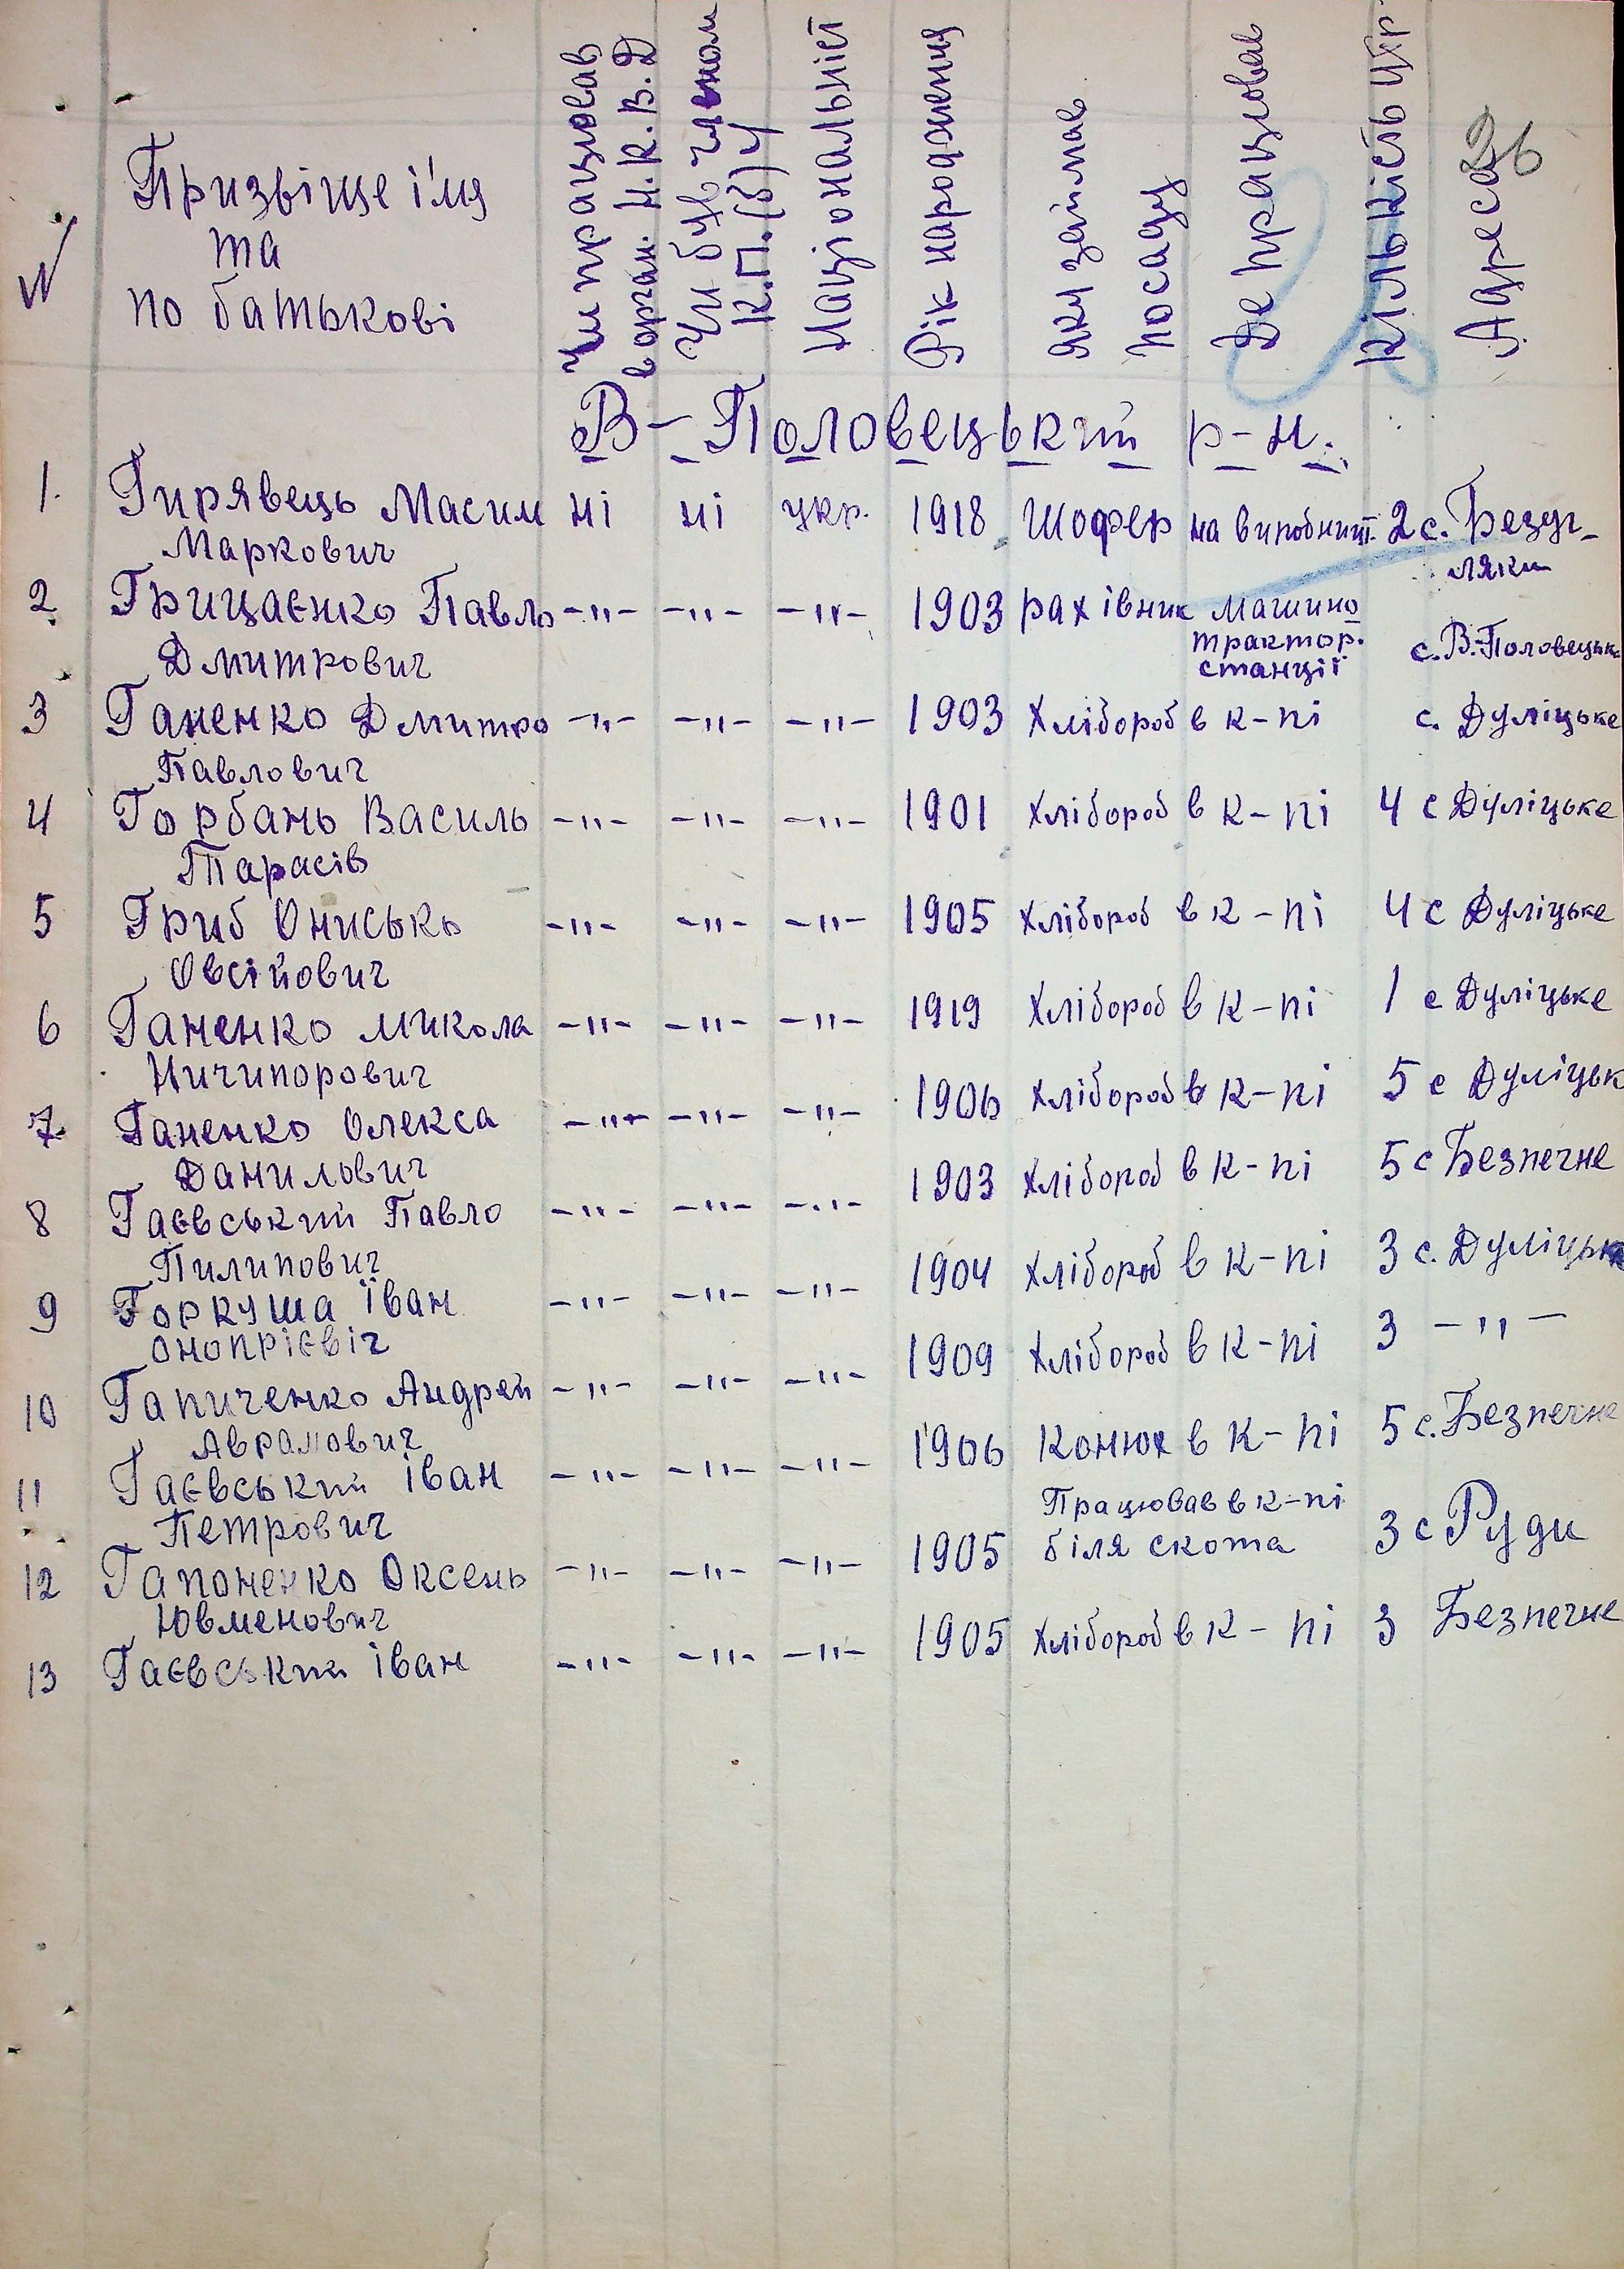 26
№
Призвіще і'мя
та
по батькові
Чи працював
в орган. Н.К.В.Д
Чи був членом
К.П.(б)У
Національніст
Рік народження
Яку займав
посаду
Де працював
Кількість
Адреса
В-Половецький р-н.
1. Гирявець Масим ні ні укр. 1918 Шофер на виробницт. 2 с. Безуг-
Маркович ляки
2. Грицаєнко Павло -"- -"- -"- 1903 рахівник Машино
Дмитрович трактор. с. В.-Половецьке
станції
3 Ганенко Дмитро -"- -"- -"- 1903 Хлібороб в к-пі с. Дуліцьке
Павлович
4 Горбань Василь -"- -"- -"- 1901 Хлібороб в к-пі 4 с Дуліцьке
Тарасів
5 Гриб Онисько -"- -"- -"- 1905 Хлібороб в к-пі 4 с Дуліцьке
Овсійович
6 Ганенко Микола -"- -"- -"- 1919 Хлібороб в к-пі 1 с Дуліцьке
Ничипорович
7 Ганенко Олекса -"- -"- -"- 1906 Хлібороб в к-пі 5 с Дуліцьк
Данилович
8 Гаєвський Павло -"- -"- -"- 1903 Хлібороб в к-пі 5 с Безпечне
Пилипович
9 Горкуша Іван -"- -"- -"- 1904 Хлібороб в к-пі 3 с. Дуліцьк
Онопрієвіч
10 Гапиченко Андрей -"- -"- -"- 1909 Хлібороб в к-пі 3 -"-
Аврамович
11 Гаєвський Іван -"- -"- -"- 1906 Конюх в к-пі 5 с. Безпечне
Петрович
12 Гапоненко Оксень -"- -"- -"- 1905 Працював в к-пі 3 с Руди
Ювменович біля скота
13 Гаєвський Іван -"- -"- -"- 1905 Хлібороб в к-пі 3 Безпечне